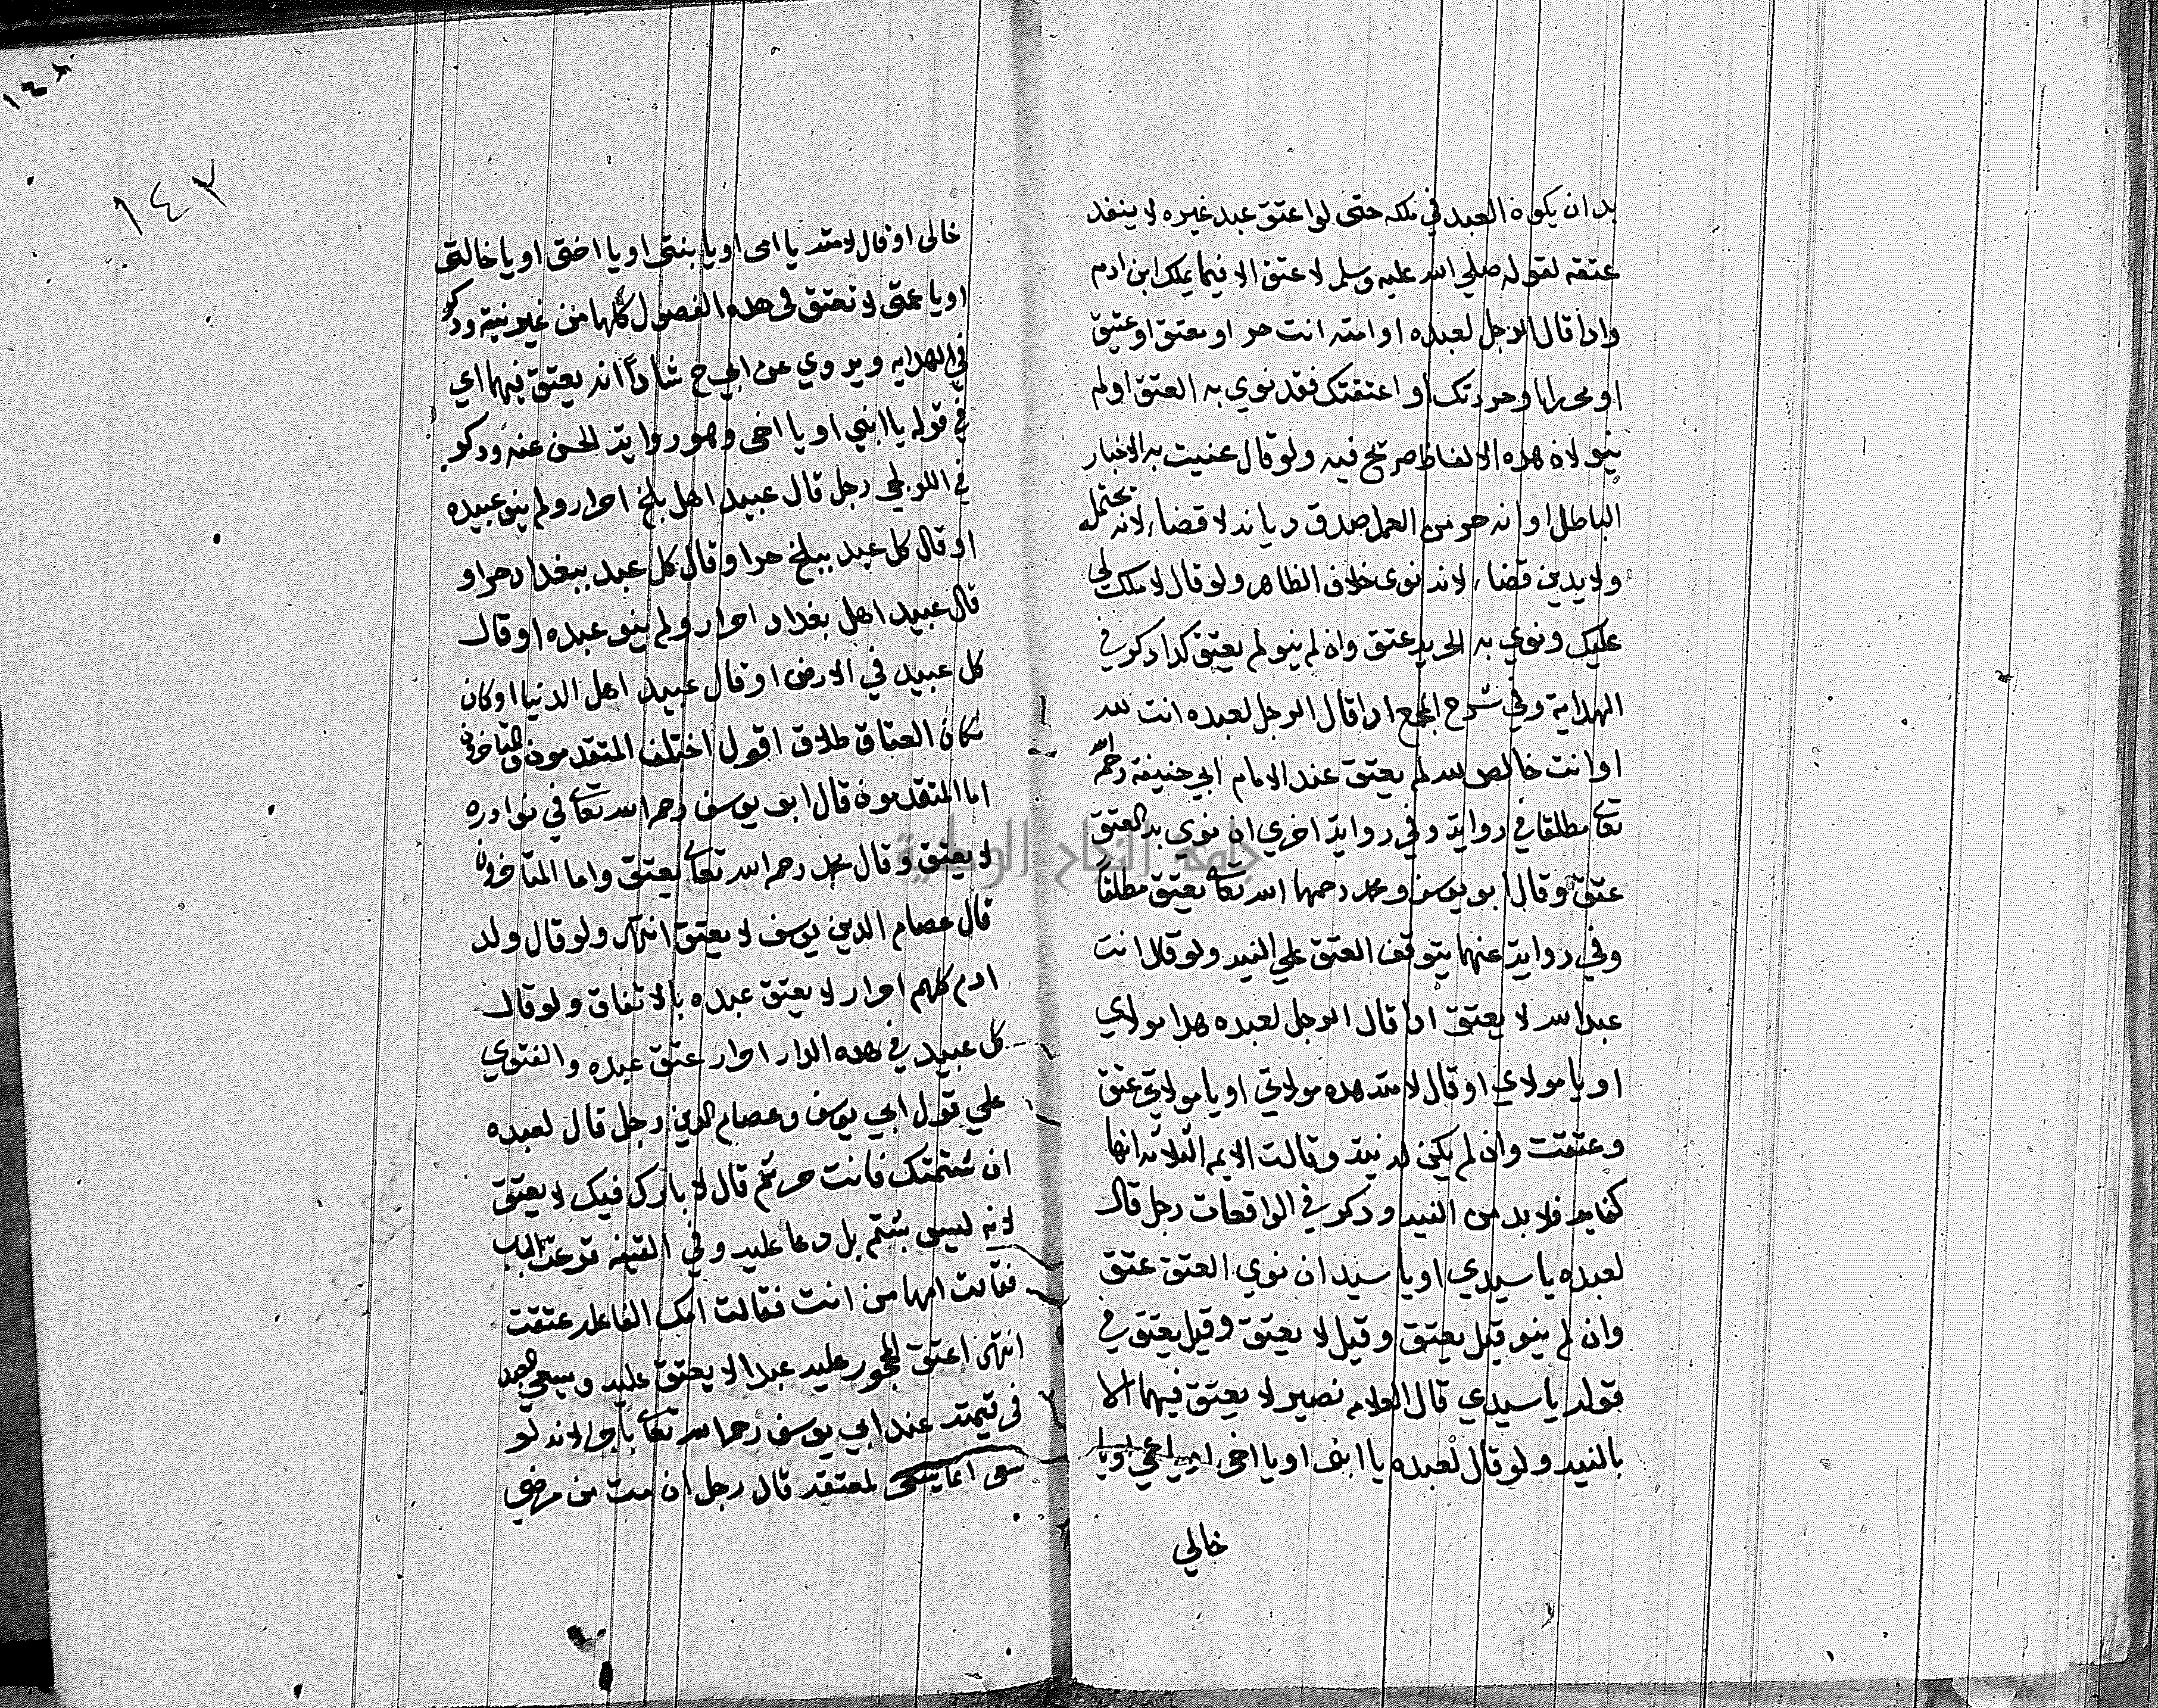 بد ان يكون العبد في ملكه حتى لو اعتق عبد غيره لا ينفد
عتقه لقوله صلي الله عليه وسلم لا عتق الا فيما يملك ابن ادم
وادا قال الرجل لعبده او امته انت حر او معتق او عتيق
او محررا وحررتك او اعتقتك فقد نوي به العتق اولم
ينو لان هده الالفاظ صريح فيه ولو قال عنيت به الاخبار
الباطل او انه حر من العمل صدق ديانه لا قضاء لانه يحتمله
ولا يدين قضاء لانه نوى خلاف الظاهر ولو قال لا ملك لي
عليك ونوي به الحريه عتق وان لم ينو لم يعتق كدا دكر في
الهداية وفي شرح المجمع ادا قال الرجل لعبده انت لله
او انت خالص لله لم يعتق عند الامام ابي حنيفة رحمه الله
تعالى مطلقا في رواية وفي رواية اخري ان نوي به العتق
عتق وقال ابو يوسف ومحمد رحمهما الله تعالى يعتق مطلقا
وفي رواية عنهما يتوقف العتق علي النيه ولو قال انت
عبد الله لا يعتق ادا قال الرجل لعبده هدا مولاي
او يا مولاي او قال لامته هده مولاتي او يا مولاتي عتق
وعتقت وان لم يكن له نية وقالت الايمه الثلاثه انها
كنايه فلا بد من النيه ودكر في الواقعات رجل قال
لعبده يا سيدي او يا سيد ان نوي العتق عتق
وان لم ينو قيل يعتق وقيل لا يعتق وقيل يعتق في
قوله يا سيدي قال العلامه نصير لا يعتق فيهما الا
بالنيه ولو قال لعبده يا ابني او يا اخى او يا عمي او يا
خالي
١٤٢
خالى او قال لامته يا امى او يا بنتى او يا اختى او يا خالتى
او يا عمتى لا تعتق فى هده الفصول كلها من غير نية ودكر
في الهدايه ويروي عن ابي ح شاداً انه يعتق فيهما اي
في قوله يا ابني او يا اخى وهو رواية الحسن عنه ودكر
في رجل قال عبيد اهل بلخ احرار ولم ينو عبيده
او قال كل عبد ببلخ حر او قال كل عبد ببغداد حر او
قال عبيد اهل بغداد احرار ولم ينو عبده او قال
كل عبيد في الارض او قال عبيد اهل الدنيا او كان
مكان العتاق طلاق اقول اختلف المتقدمون والمتاخرون
اما المتقدمون قال ابو يوسف رحمه الله تعالى في نوادره
لا يعتق وقال محمد رحمه الله تعالى يعتق واما المتاخرون
قال عصام الدين يوسف لا يعتق انتهى ولو قال ولد
ادم كلهم احرار لا يعتق عبده بالاتفاق ولو قال
كل عبيد في هده الدار احرار عتق عبده والفتوي
علي قول ابي يوسف وعصام الدين رجل قال لعبده
ان شتمتك فانت حر ثم قال لا بارك فيك لا يعتق
لانه ليس بشتم بل دعا عليه وفي القنيه قرعت الباب
فقالت امها من انت فقالت امك الفاعله عتقت
انتهى اعتق المحجور عليه عبدا لا يعتق عليه ويسعى العبد
فى قيمته عند ابي يوسف رحمه الله تعالى لانه لو
سعى انما يسعى لمعتقه قال رجل ان مت من مرضي
جامعة النجاح الوطنية